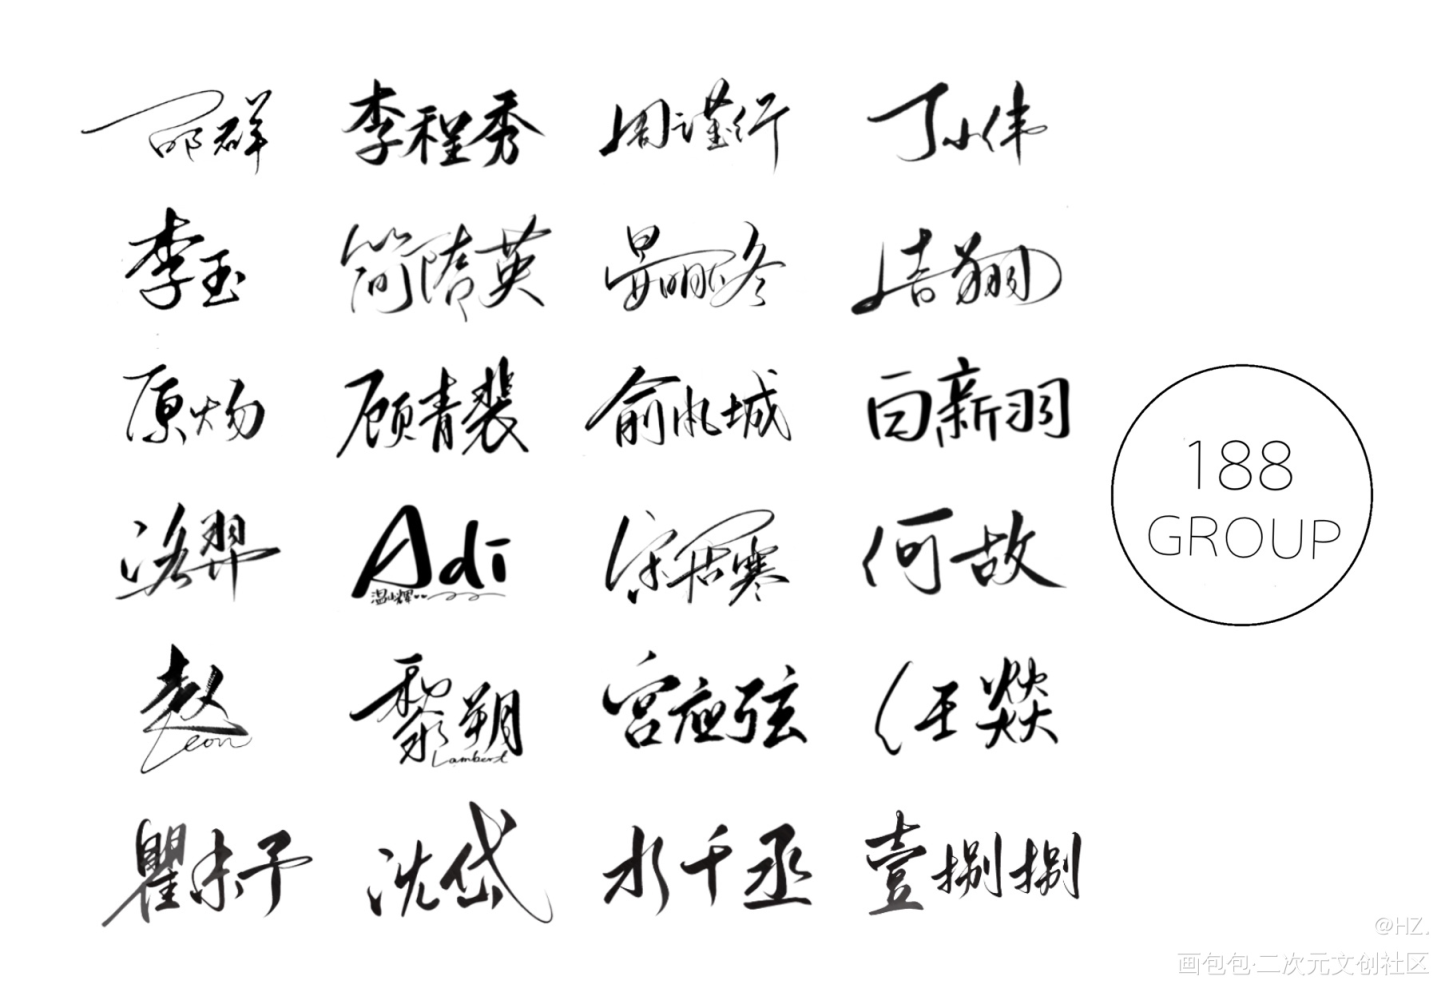 邵群 李程秀 周谨行 丁小伟
李玉 简隋英 晏明修 周翔
原炀 顾青裴 俞风城 白新羽
洛羿 Adi 温小辉 宋居寒 何故
赵 Leon 黎朔 Lambert 宫应弦 任燚
瞿末予 沈岱 水千丞 壹捌捌
188
GROUP
@HZ.
画包包·二次元文创社区